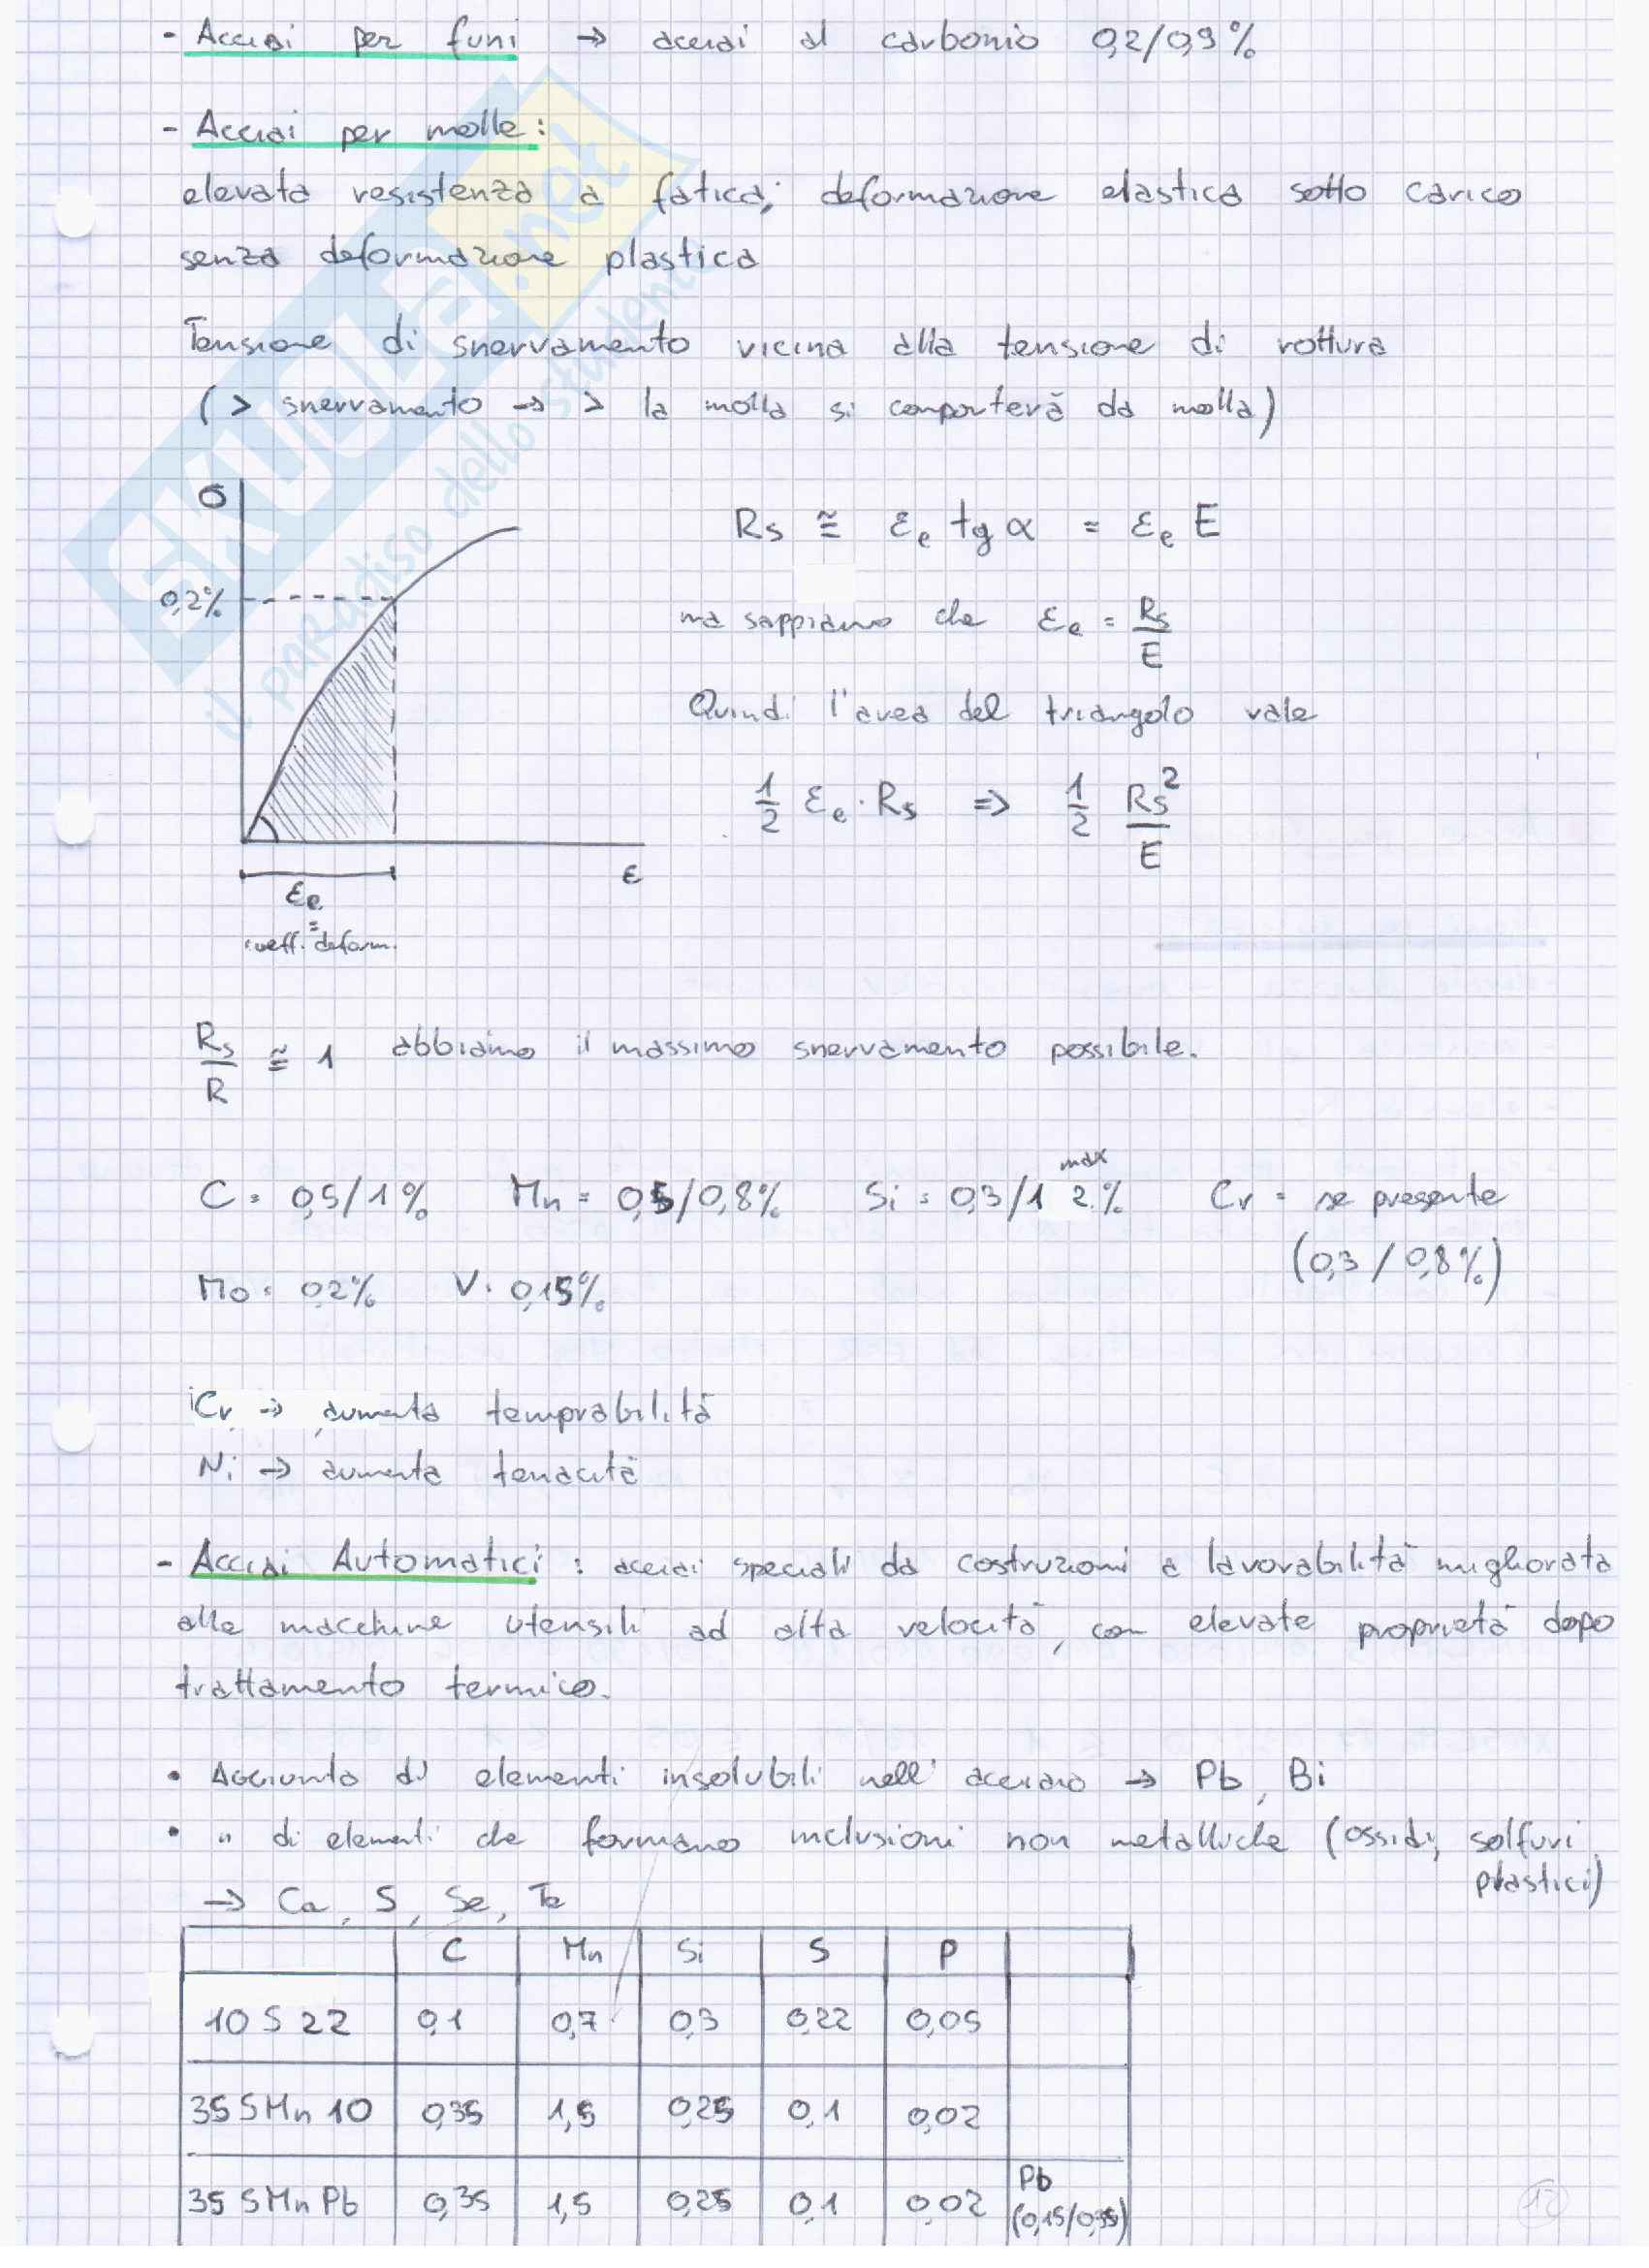 - Acciai per funi → acciai al carbonio 0,2/0,9%
- Acciai per molle:
elevata resistenza a fatica; deformazione elastica sotto carico
senza deformazione plastica
Tensione di snervamento vicina alla tensione di rottura
(> snervamento → > la molla si comporterà da molla)
σ
0,2%
ε
εe
=
coeff. deform.
Rs ≅ εe tg α = εe E
ma sappiamo che εe = Rs/E
Quindi l'area del triangolo vale
1/2 εe · Rs ⇒ 1/2 Rs²/E
Rs/R ≅ 1 abbiamo il massimo snervamento possibile.
C = 0,5/1% Mn = 0,5/0,8% Si = 0,3/1 max 2% Cr = se presente
(0,3/0,8%)
Mo = 0,2% V = 0,15%
Cr → aumenta temprabilità
Ni → aumenta tenacità
- Acciai Automatici : acciai speciali da costruzioni a lavorabilità migliorata
alle macchine utensili ad alta velocità, con elevate proprietà dopo
trattamento termico.
• Aggiunta di elementi insolubili nell' acciaio → Pb, Bi
• " di elementi che formano inclusioni non metalliche (ossidi, solfuri
plastici)
→ Ca, S, Se, Te
C Mn Si S P
10 S 22 0,1 0,7 0,3 0,22 0,05
35 SMn 10 0,35 1,5 0,25 0,1 0,02
35 SMn Pb 0,35 1,5 0,25 0,1 0,02 Pb (0,15/0,35)
12
SKUOLA.net
il paradiso dello studente